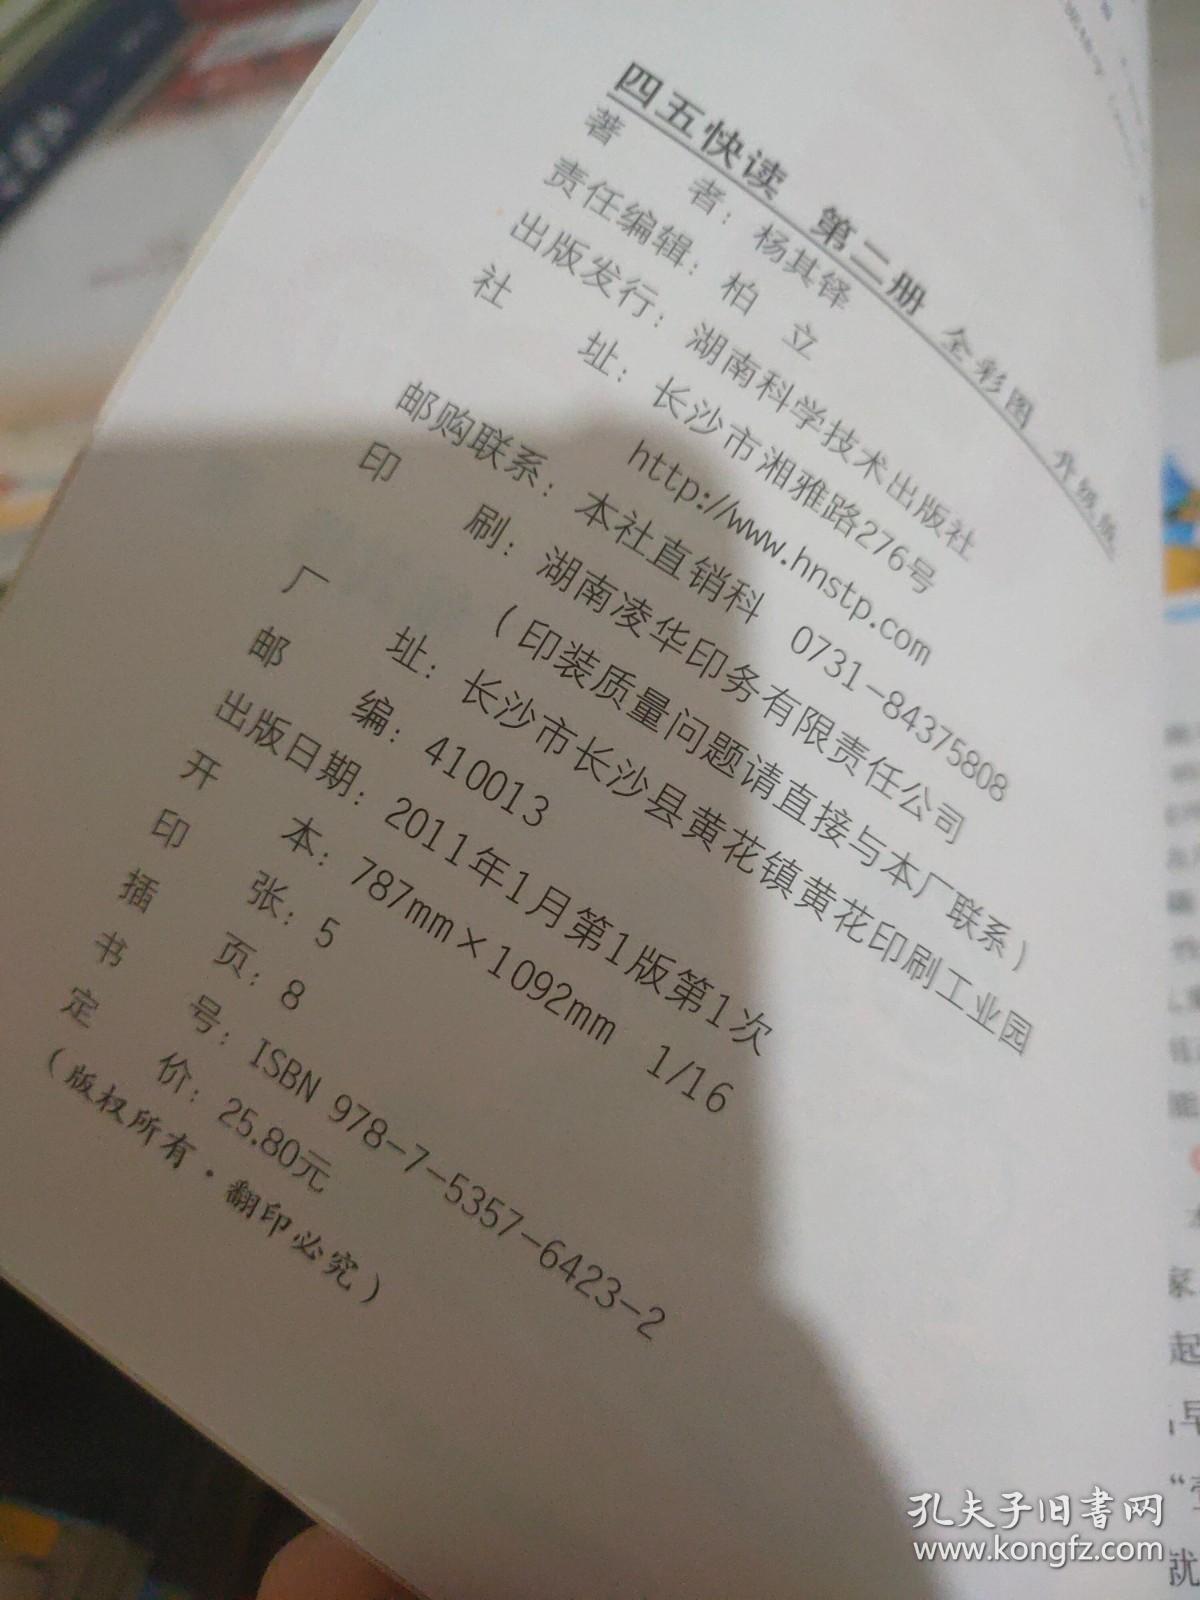 四五快读 第二册 全彩图 升级版
著 者：杨其铎
责任编辑：柏 立
出版发行：湖南科学技术出版社
社 址：长沙市湘雅路276号
http://www.hnstp.com
邮购联系：本社直销科 0731-84375808
印 刷：湖南凌华印务有限责任公司
（印装质量问题请直接与本厂联系）
厂 址：长沙市长沙县黄花镇黄花印刷工业园
邮 编：410013
出版日期：2011年1月第1版第1次
开 本：787mm×1092mm 1/16
印 张：5
插 页：8
书 号：ISBN 978-7-5357-6423-2
定 价：25.80元
（版权所有·翻印必究）
家
起
早
就
孔夫子旧书网
www.kongfz.com